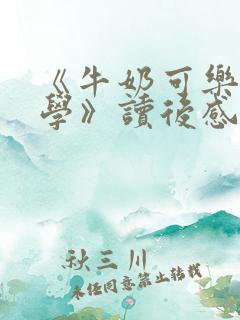 《牛奶可樂
學》讀後感
秋三川
未經同意禁止轉載